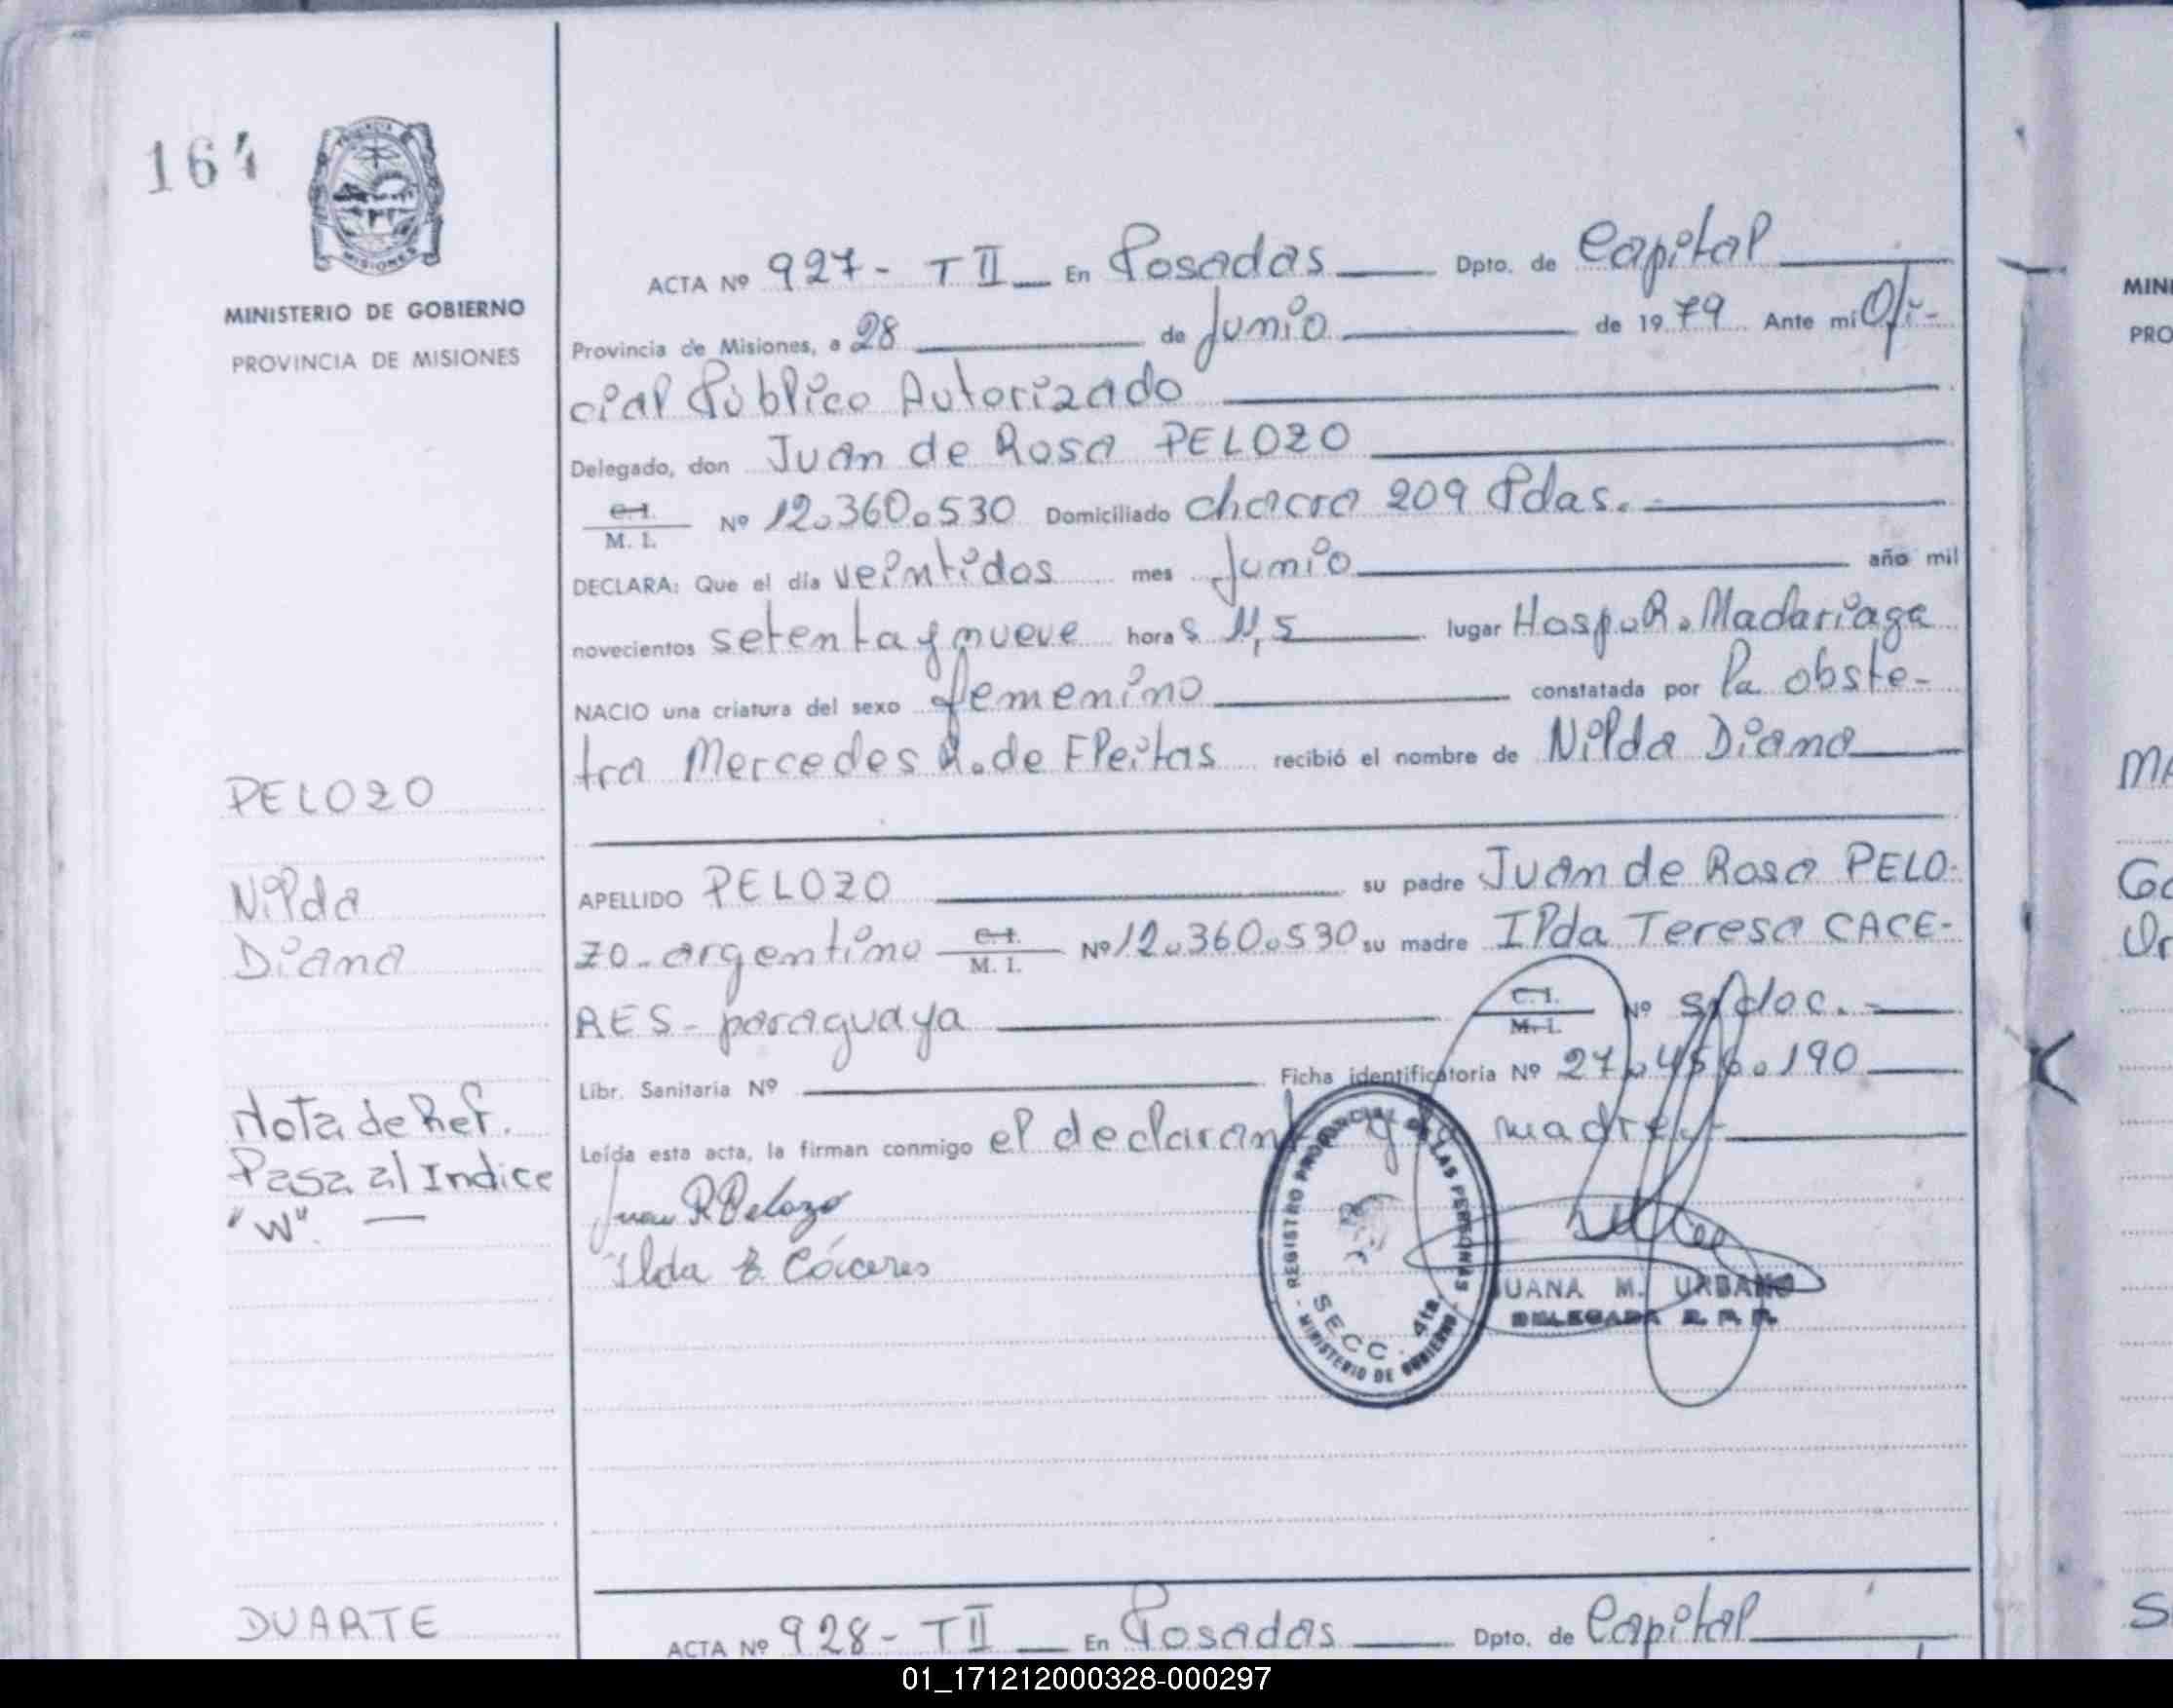 164
PROVINCIA
MISIONES
MINISTERIO DE GOBIERNO
PROVINCIA DE MISIONES
ACTA Nº 927- T II En Posadas Dpto. de Capital
Provincia de Misiones, a 28 de Junio de 1979 Ante mi Ofi-
cial Público Autorizado
Delegado, don Juan de Rosa PELOZO
C.I. M. I. Nº 12.360.530 Domiciliado chacra 209 Pdas.-
DECLARA: Que el día veintidos mes Junio año mil
novecientos setenta y nueve hora s 11,5 lugar Hosp. R. Madariaga
NACIO una criatura del sexo femenino constatada por la obste-
tra Mercedes R. de Fleitas recibió el nombre de Nilda Diana
PELOZO
Nilda
Diana
APELLIDO PELOZO su padre Juan de Rosa PELO-
ZO- argentino C.I. M. I. Nº 12.360.530 su madre Ilda Teresa CACE-
RES- paraguaya C.I. M.I. Nº s/doc.-
Libr. Sanitaria Nº Ficha identificatoria Nº 27.456.190
Leída esta acta, la firman conmigo el declarante y la madre.-
Nota de Ref.
Pasa al Indice
"W". —
Juan R Pelozo
Ilda T. Cáceres
REGISTRO PROVINCIAL DE LAS PERSONAS
SECC. 4ta.
MINISTERIO DE GOBIERNO
JUANA M. URBANO
DELEGADA R. P. P.
DUARTE
ACTA Nº 928- T II En Posadas Dpto. de Capital
MINI
PRO
MA
Go
01_171212000328-000297